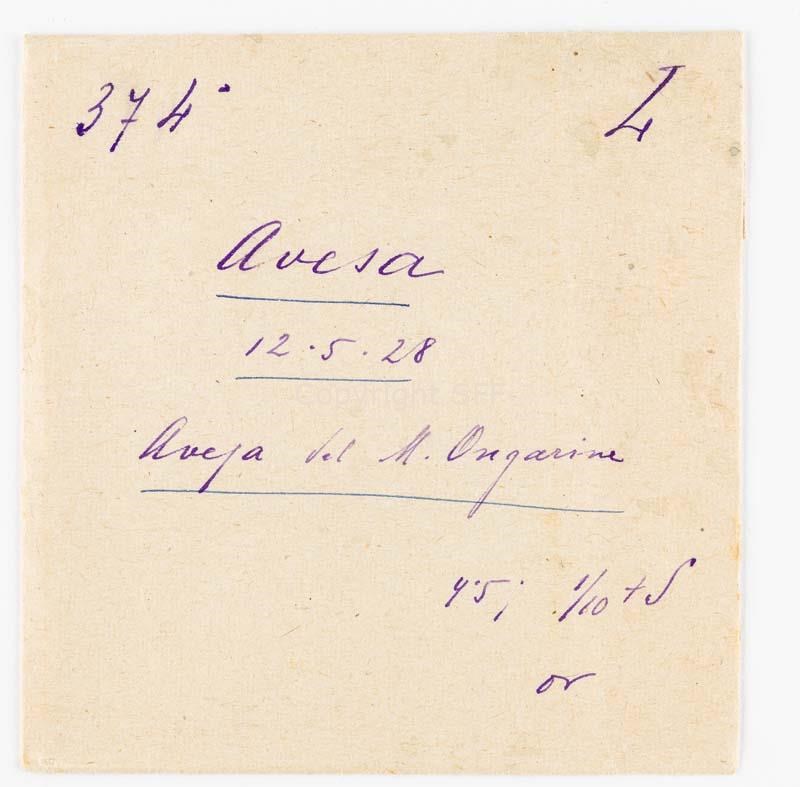 374· L
Avesa
12·5·28
Copyright SFF
Avesa dal M. Ongarine
4·5; 1/10 + S
or